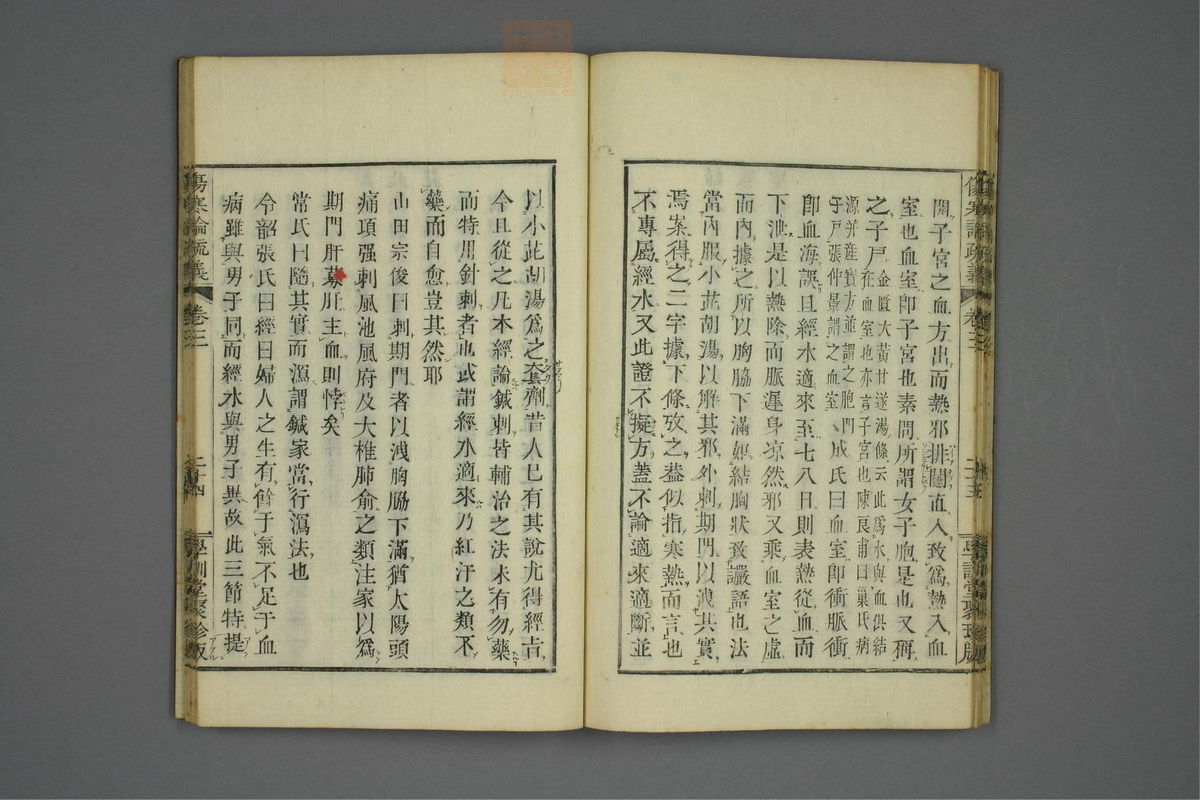 開子宮之血方出而熱邪排闥直入致爲熱入血
室也血室卽子宮也素問所謂女子胞是也又稱
之子戶金匱大黃甘遂湯條云此爲水與血俱結在血室也亦言子宮也陳良甫曰巢氏病
源并產寶方並謂之胞門子戶張仲景謂之血室、成氏曰血室卽衝脈衝
卽血海誤且經水適來至七八日則表熱從血而
下泄是以熱除而脈遲身凉然邪又乘血室之虛
而內據之所以胸脇下滿如結胸狀致讝語也法
當內服小茈胡湯以解其邪外刺期門以洩其實
焉案得之二字據下條攷之葢似指寒熱而言也
不專屬經水又此證不擬方蓋不論適來適斷並
傷寒論疏義
卷三
二十三
學訓堂聚珍版
以小茈胡湯爲之套劑昔人巳有其說尤得經旨
今且從之凡本經論鍼刺皆輔治之法未有勿藥
而特用針刺者也或謂經水適來乃紅汗之類不
藥而自愈豈其然耶
山田宗俊曰刺期門者以洩胸脇下滿猶太陽頭
痛項强刺風池風府及大椎肺俞之類注家以爲
期門肝募肝主血則悖矣
常氏曰隨其實而瀉謂鍼家當行瀉法也
令韶張氏曰經曰婦人之生有餘于氣不足于血
病雖與男子同而經水與男子異故此三節特提
傷寒論疏義
卷三
二十四
學訓堂聚珍版